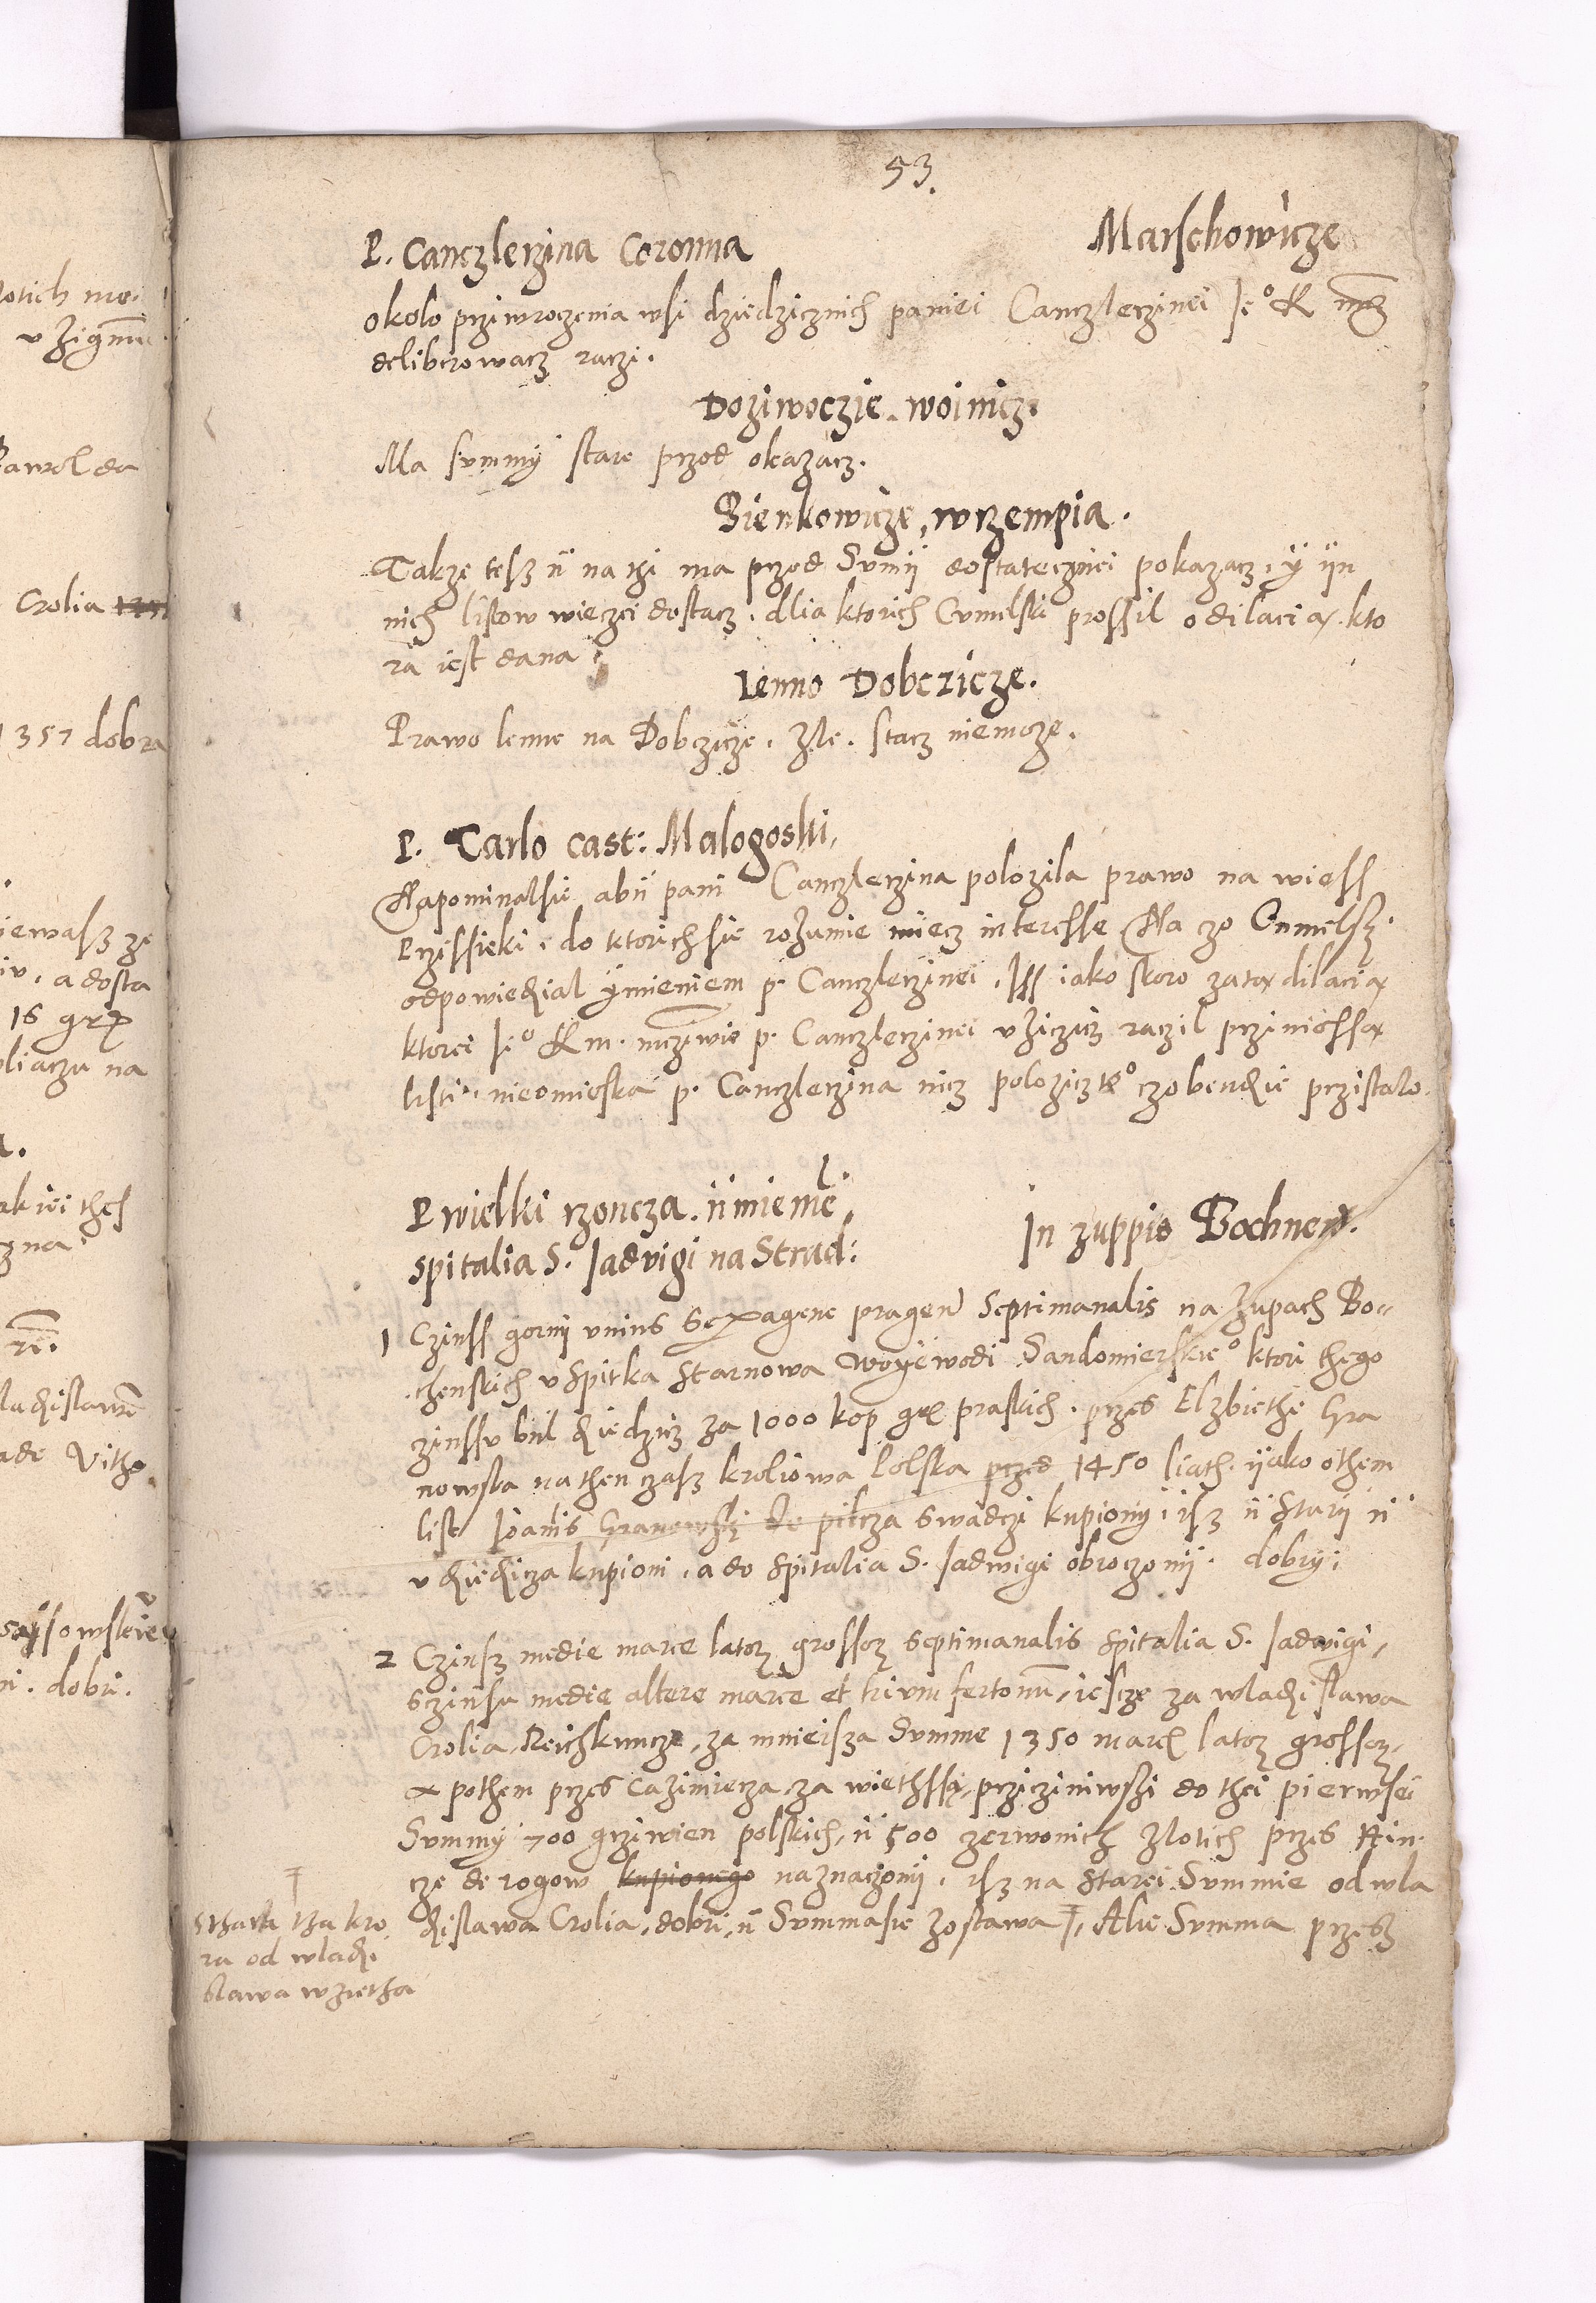 53.
P. Canczlerzina Coronna
Marschowicze
okolo prziwroczenia wsi dziedzicznich paniei Canczlerzinei Je° K mcz
deliberowacz raczi.
Doziwoczie. woinicz.
Ma summy stare przed okazacz.
Bienkowicze, wrzempia.
Takze tesz ÿ na thi ma przed Summÿ dostatecznei pokazacz, ÿ ÿn
nich listow wieczei dostacz. dlia ktorich Cumelski prossil o dilacią. kto
ra iest dana.
Lenno Dobczicze.
Prawo lenne na Dobczicze. zle. stacz niemoze.
P. Tarlo cast: Malogoski,
Napominalsie abÿ pani Canczlerzina polozila prawo na wiess
Przissieki. do ktorich sie rozumie miecz interesse Na zo Cumelsz.
odpowiedzial ÿmieniem p. Canczlerzinei. Iss iako skoro zatą dilacią
ktorei Je° K m. mczewie p. Canczlerzinei vziczicz raczil prziniossą
listi. nieomieska p. Canczlerzina nicz poloziczte° czobendzie przistalo.
P wielki rzoncza. ÿmiemel.
spitalia S. Jadvigi na Strad:
In zuppis Bochnen.
1 Czinss gorni vnius Sexagene pragen Septimanalis na Zupach Bo=
chenskich v Spitka Starnowa Woÿewodi Sandomierskie° ktori thego
zinssu bÿl dziedzicz za 1000 kop gr praskich. przes Elzbiethe Gra
nowska na then czasz kroliowa Polska przed 1450 liath. ÿako othem
list Joanis Granowski de pilcza swadczi kupiony. isz ÿ Starÿ ÿ
v dziedzicza kupioni. a do Spitalia S. Jadwigi obroczonÿ. dobrÿ.
2 Czinsz medie marce lator grossor septimanalis Spitalia S. Jadwigi,
Sczinsu medie altere marce et trium fertonum, iescze za wladzislawa
Crolia, Neichkuncze, za mnieisza Summe 1350 marc lator grossor,
A pothem przes Cazimierza, za wiethssą, przicziniwszi do thei pierwsei
Summy 700 grziwien polskich, ÿ 500 zerwonich zlotich przes Hin
cze de rogow kupionego naznaczonÿ. isz na Starei Summie od wla
dzislawa Crolia, dobri, ÿ Summa sie zostawa ╤, Alie Summa przesz
╤
Stara tha kto
ra od wladzi
slawa wzietha